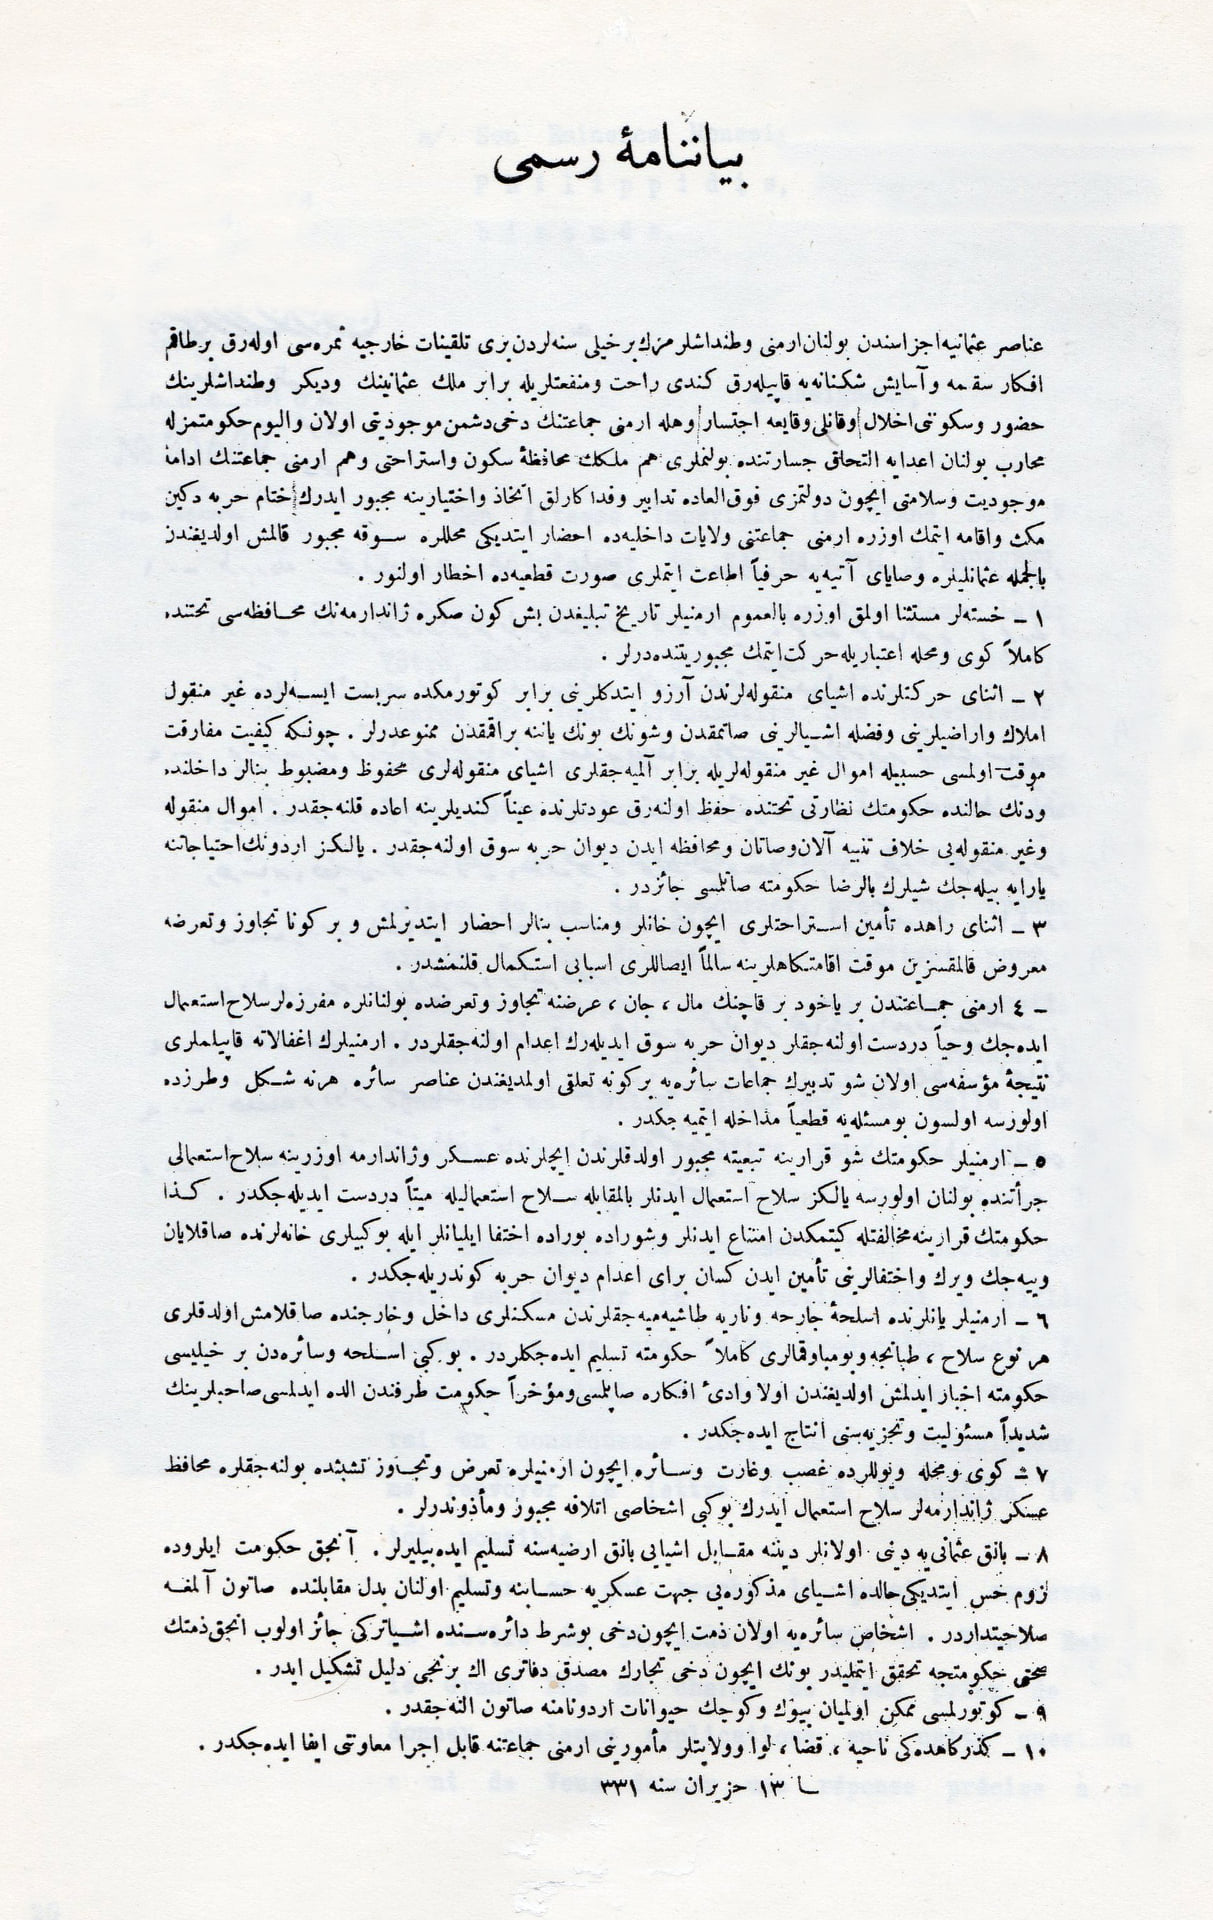 بياننامهٔ رسمى
عناصر عثمانيه اجزاسندن بولنان ارمنى وطنداشلرمزك بر خيلى سنه‌لردن برى تلقينات خارجيه ثمره‌سى اوله‌رق بر طاقم
افكار سقيمه و آسايش شكنانه‌يه قاپيله‌رق كندى راحت ومنفعتلريله برابر ملك عثمانينك وديكر وطنداشلرينك
حضور وسكوننى اخلال وقانلى وقايعه اجتسار وهله ارمنى جماعتنك دخى دشمن موجوديتى اولان واليوم حكومتمزله
محارب بولنان اعدايه التحاق جسارتنده بولنملرى هم ملكك محافظهٔ سكون واستراحتى وهم ارمنى جماعتنك ادامهٔ
موجوديت وسلامتى ايچون دولتمزى فوق العاده تدابير وفداكارلق اتخاذ واختيارينه مجبور ايدرك ختام حربه دكين
مكث واقامه ايتمك اوزره ارمنى جماعتنى ولايات داخليه‌ده احضار ايتديكى محللره سوقه مجبور قالمش اولديغندن
بالجمله عثمانليلره وصاياى آتيه‌يه حرفياً اطاعت ايتملرى صورت قطعيه‌ده اخطار اولنور .
١ ـ خسته‌لر مستثنا اولمق اوزره بالعموم ارمنيلر تاريخ تبليغدن بش كون صكره ژاندارمه‌نك محافظه‌سى تحتنده
كاملاً كوى ومحله اعتباريله حركت ايتمك مجبوريتنده‌درلر .
٢ ـ اثناى حركتلرنده اشياى منقوله‌لرندن آرزو ايتدكلرينى برابر كوتورمكده سربست ايسه‌لرده غير منقول
املاك واراضيلرينى وفضله اشيالرينى صاتمقدن وشونك بونك ياننه براقمقدن ممنوعدرلر . چونكه كيفيت مفارقت
موقت اولمسى حسبيله اموال غير منقوله‌لريله برابر آلميه‌جقلرى اشياى منقوله‌لرى محفوظ ومضبوط بنالر داخلنده
ودنك حالنده حكومتك نظارتى تحتنده حفظ اولنه‌رق عودتلرنده عيناً كنديلرينه اعاده قلنه‌جقدر . اموال منقوله
وغير منقوله‌يى خلاف تنبيه آلان وصاتان ومحافظه ايدن ديوان حربه سوق اولنه‌جقدر . يالكز اردونك احتياجاتنه
يارايه بيله‌جك شيلرك بالرضا حكومته صاتلمسى جائزدر .
٣ ـ اثناى راهده تأمين استراحتلرى ايچون خانلر ومناسب بنالر احضار ايتديرلمش و بر كونا تجاوز وتعرضه
معروض قالمقسزين موقت اقامتكاهلرينه سالماً ايصاللرى اسبابى استكمال قلنمشدر .
٤ ـ ارمنى جماعتندن بر ياخود بر قاچنك مال ، جان ، عرضنه تجاوز وتعرضده بولنانلره مفرزه‌لر سلاح استعمال
ايده‌جك وحياً دردست اولنه‌جقلر ديوان حربه سوق ايديله‌رك اعدام اولنه‌جقلردر . ارمنيلرك اغفالاته قاپيلملرى
نتيجهٔ مؤسفه‌سى اولان شو تدبيرك جماعات سائره‌يه بر كونه تعلقى اولمديغندن عناصر سائره هرنه شكل وطرزده
اولورسه اولسون بو مسئله‌يه قطعياً مداخله ايتميه جكدر .
٥ ـ ارمنيلر حكومتك شو قرارينه تبعيته مجبور اولدقلرندن ايچلرنده عسكر وژاندارمه اوزرينه سلاح استعمالى
جرأتنده بولنان اولورسه يالكز سلاح استعمال ايدنلر بالمقابله سلاح استعماليله ميتاً دردست ايديله‌جكدر . كذا
حكومتك قرارينه مخالفتله كيتمكدن امتناع ايدنلر وشوراده بوراده اختفا ايليانلر ايله بو كبيلرى خانه‌لرنده صاقلايان
وييه‌جك ويرك واختفالرينى تأمين ايدن كسان براى اعدام ديوان حربه كوندريله‌جكدر .
٦ ـ ارمنيلر يانلرنده اسلحهٔ جارحه وناريه طاشيه‌ميه‌جقلرندن مسكنلرى داخل وخارجنده صاقلامش اولدقلرى
هر نوع سلاح ، طبانجه وبومبا وقمالرى كاملاً حكومته تسليم ايده‌جكلردر . بو كبى اسلحه وسائره‌دن بر خيليسى
حكومته اخبار ايدلمش اولديغندن اولا وادئ افكاره صاپلمسى ومؤخراً حكومت طرفندن الده ايدلمسى صاحبلرينك
شديداً مسئوليت وتجزيه‌سنى انتاج ايده‌جكدر .
٧ ـ كوى ومحله ويوللرده غصب وغارت وسائره ايچون ارمنيلره تعرض وتجاوز تشبثده بولنه‌جقلره محافظ
عسكر ژاندارمه‌لر سلاح استعمال ايدرك بو كبى اشخاصى اتلافه مجبور ومأذوندرلر .
٨ ـ بانق عثمانى‌يه دينى اولانلر ديننه مقابل اشيايى بانق ارضيه‌سنه تسليم ايده‌بيليرلر . آنجق حكومت ايلروده
لزوم حس ايتديكى حالده اشياى مذكوره‌يى جهت عسكريه حسابنه وتسليم اولنان بدل مقابلنده صاتون آلمغه
صلاحيتداردر . اشخاص سائره‌يه اولان ذمت ايچون دخى بو شرط دائره‌سنده اشيا تركى جائز اولوب انجق ذمتك
صحتى حكومتجه تحقق ايتمليدر بونك ايچون دخى تجارك مصدق دفاترى اك برنجى دليل تشكيل ايدر .
٩ ـ كوتورلمسى ممكن اولميان بيوك وكوچك حيوانات اردو نامنه صاتون النه‌جقدر .
١٠ ـ كذركاهده‌كى ناحيه ، قضا ، لوا وولايتلر مأمورينى ارمنى جماعتنه قابل اجرا معاونتى ايفا ايده‌جكدر .
١٣ حزيران سنه ٣٣١